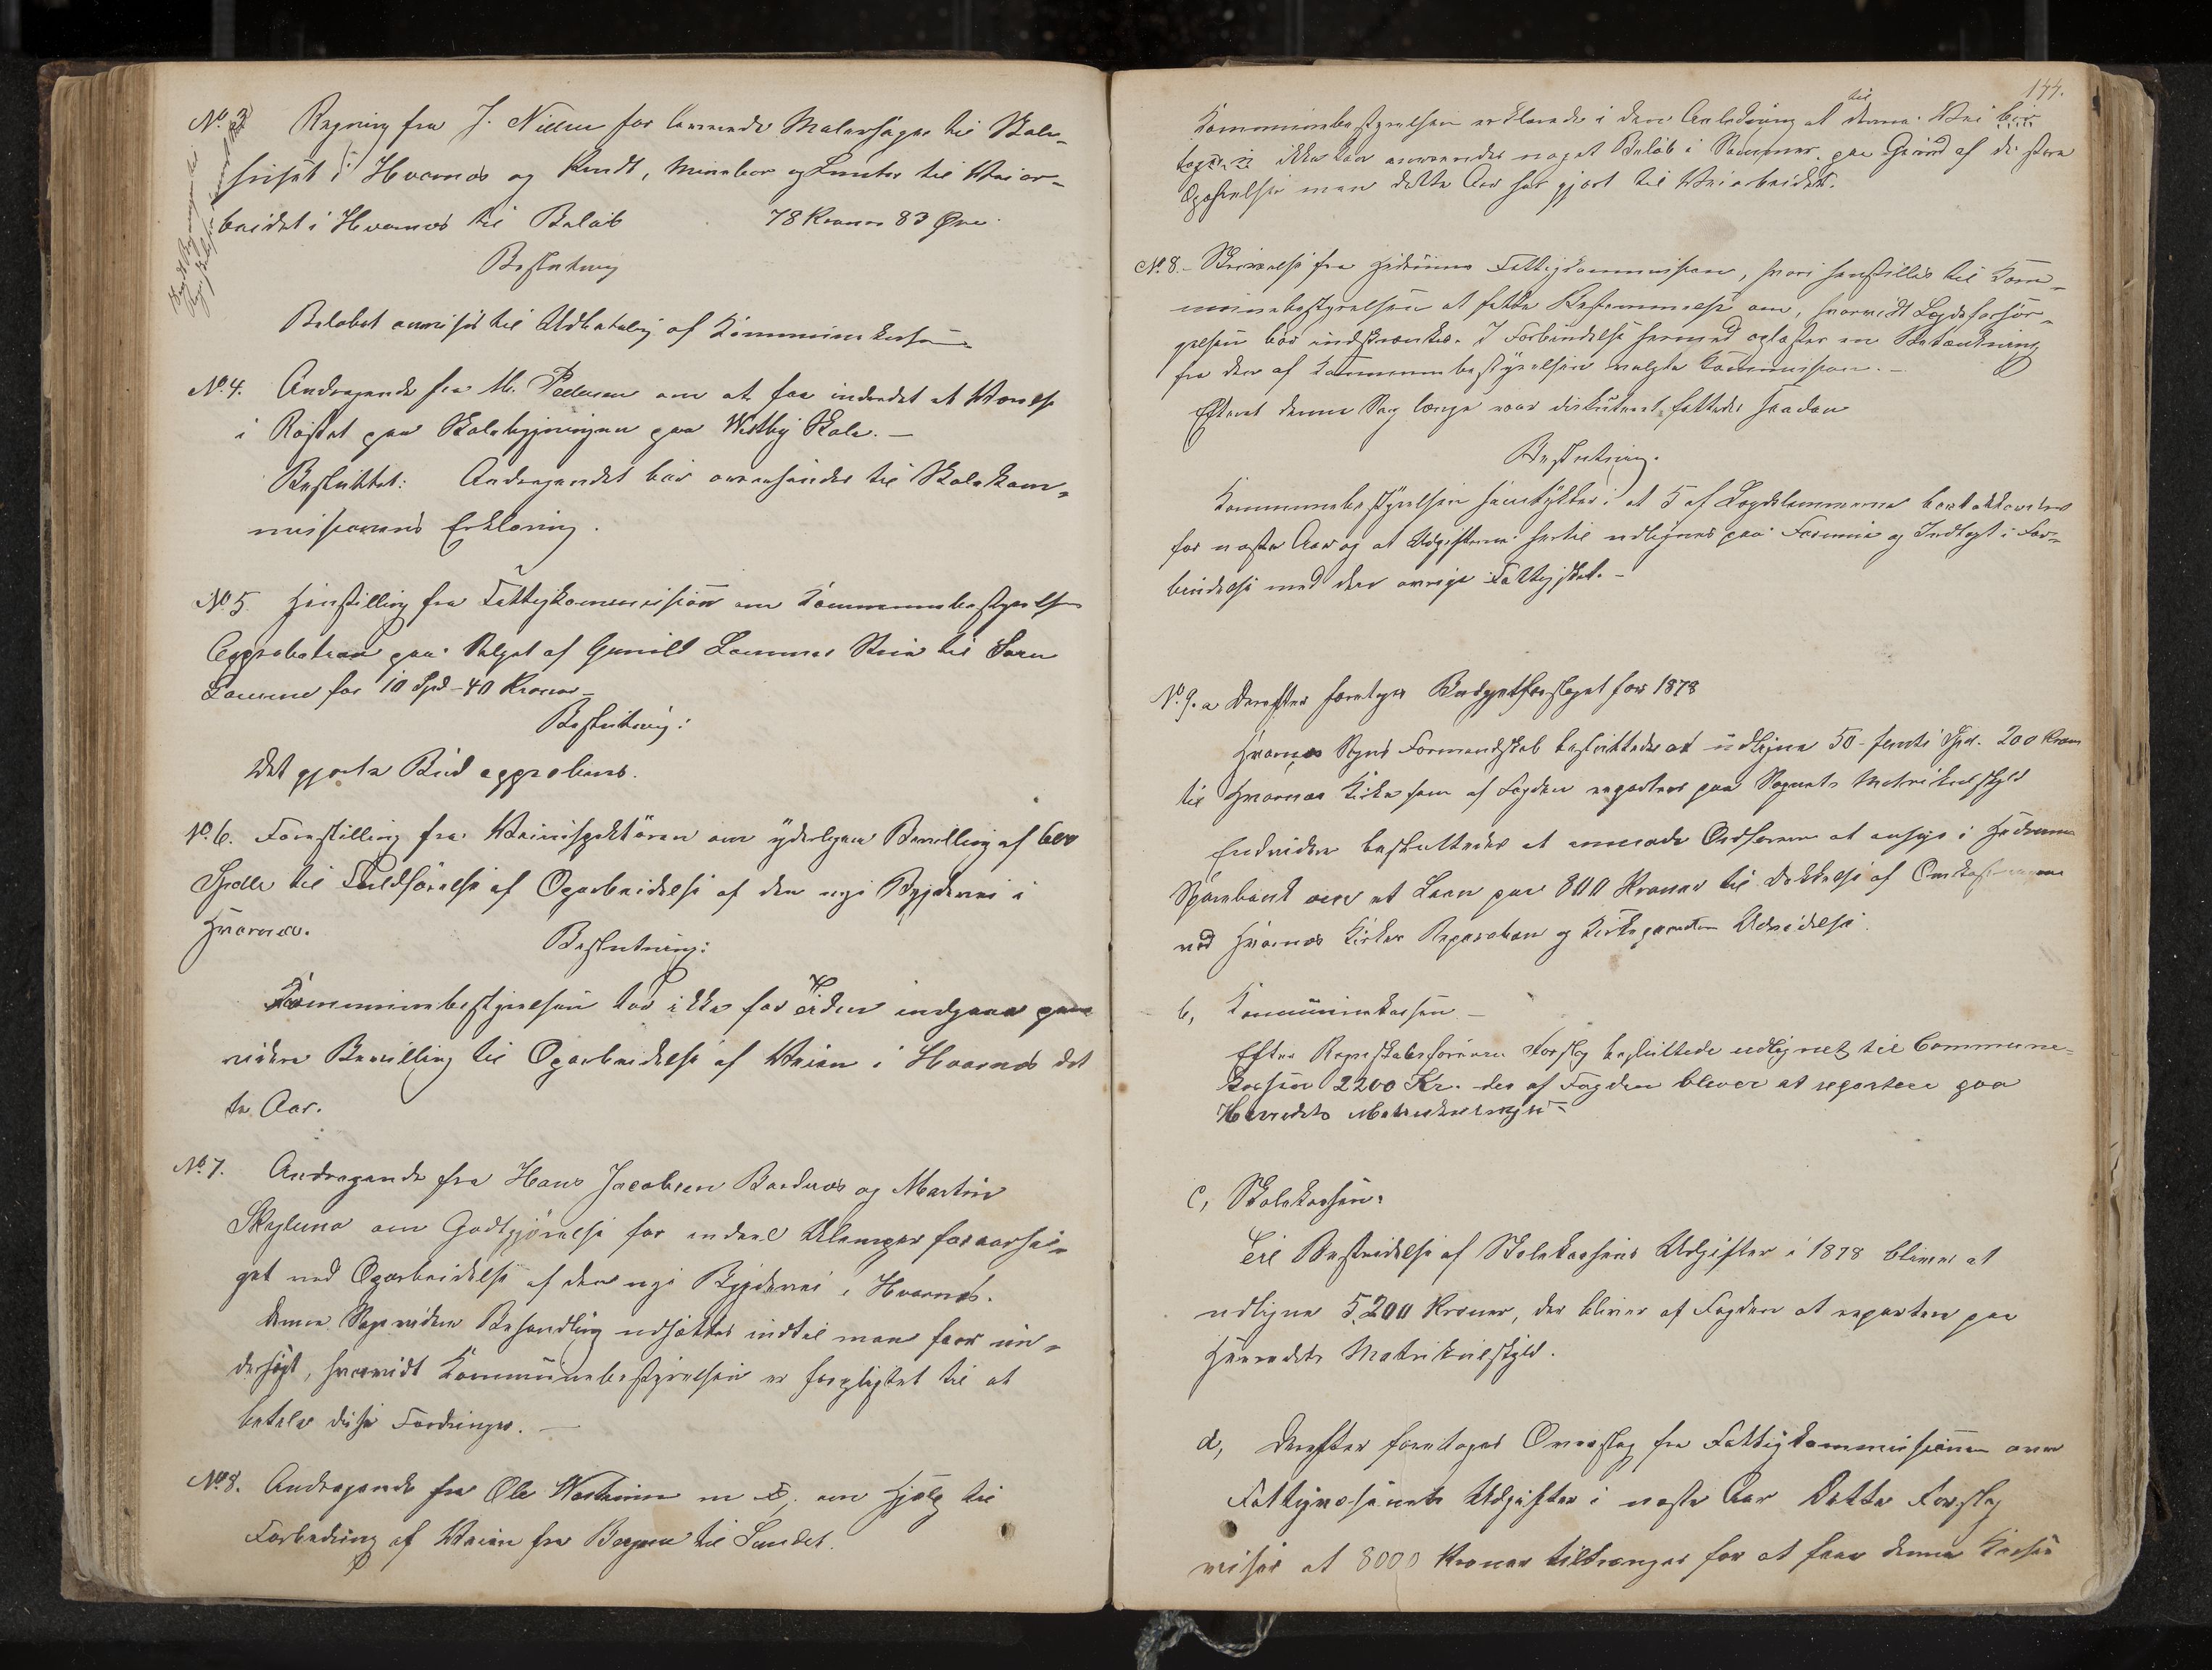 No 3 Regning fra J. Nielsen for leverede Malersager til Skole-
huset i Hvarnæs og Krudt, Minebor og Lunter til Veiar-
beidet i Hvarnæs til Beløb 78 Kroner 83 Øre.
Beslutning
Beløbet anvises til Udbetaling af Kommunekassen
No 4. Andragende fra M. Pedersen om at faa indredet et Værelse
i Røstet paa Skolebygningen paa Vestby Skole. —
Besluttet: Andragendet bør oversendes til Skolekom-
missionens Erklæring.
No 5. Henstilling fra Fattigkommissionen om Kommunebestyrelsens
Approbation paa Salget af Gunild Lammes Stue til Søren
Lamme for 10 Spd - 40 Kroner —
Beslutning:
Det gjorte Bud approberes.
No 6. Forestilling fra Veiinspektøren om yderligere Bevilling af 600
Spdlr til Fuldførelse af Oparbeidelse af den nye Bygdevei i
Hvarnæs.
Beslutning:
Kommunebestyrelsen tør ikke for Tiden indgaa paa
videre Bevilling til Oparbeidelse af Veien i Hvarnæs det
te Aar.
No 7. Andragende fra Hans Jacobsen Bardnæs og Martin
om Godtgjørelse for endeel Ulemper foraarsa-
get ved Oparbeidelse af den nye Bygdevei i Hvarnæs.
Denne Sags videre Behandling udsættes indtil man faar un-
dersøgt, hvorvidt Kommunebestyrelsen er forpligtet til at
betale disse Fordringer. —
No 8. Andragende fra Ole m. Fl. om Hjælp til
Forbedring af Veien fra Bergan til Sundet.
144.
Kommunebestyrelsen erklærede i den Anledning at til denne Vei
ikke kan anvendes noget Beløb i Sommer, paa Grund af de store
Opofrelser man dette Aar har gjort til Veiarbeidet.
No 8. - Skrivelse fra Hedrums Fattigkommission, hvori henstilles til Kom-
munebestyrelsen at fatte Bestemmelse om, hvorvidt Lægdsforsør-
gelsen bør indskrænkes. I Forbindelse hermed oplæstes en Betænkning
fra den af Kommunebestyrelsen valgte Kommission. —
Efterat denne Sag længe var diskuteret, fattedes saadan
Beslutning.
Kommunebestyrelsen samtykker i at 5 af Lægdslemmerne bortakkorderes
for næste Aar og at Udgifterne hertil udlignes paa Formue og Indtægt i For-
bindelse med den øvrige Fattigskat. —
No. 9. a Derefter foretoges Budgetforslaget for 1878
Hvarnæs Sogns Formandskab besluttede at udligne 50 - femti Spd. 200 Kroner
til Hvarnæs Kirke som af Fogden reparteres paa Sognets Matrikulskyld
Endvidere besluttedes at anmode Ordføreren at ansøge i Hedrums
Sparebank om et Laan paa 800 Kroner til Dækkelse af Omkostningerne
ved Hvarnæs Kirkes Reparation og Kirkegaardens Udvidelse.
b, Kommunekassen —
Efter Regnskabsførerens Forslag besluttede udlignet til Commune-
kassen 2200 Kr. der af Fogden bliver at repartere paa
Herredets Matrikulskyld —
c, Skolekassen:
Til Bestridelse af Skolekassens Udgifter i 1878 bliver at
udligne 5,200 Kroner, der bliver af Fogden at repartere paa
Herredets Matrikulskyld.
d, Derefter foretoges Overslag fra Fattigkommissionen over
Fattigvæsenets Udgifter i næste Aar. Dette Forslag
viser at 8000 Kroner tiltrænges for at faae denne Kasse